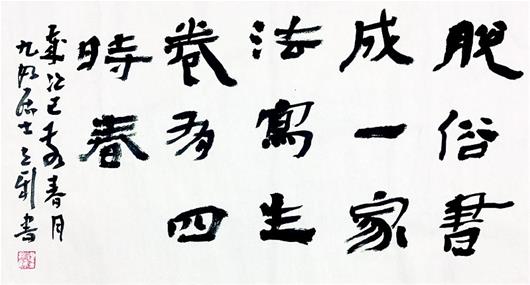 脫俗書
成一家
法寫生
卷有四
時春
歲次己亥春月
居士
書